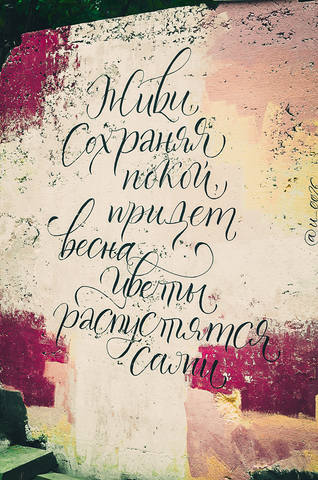 Живи,
Сохраняя
покой,
придет
весна
цветы
распустятся
сами